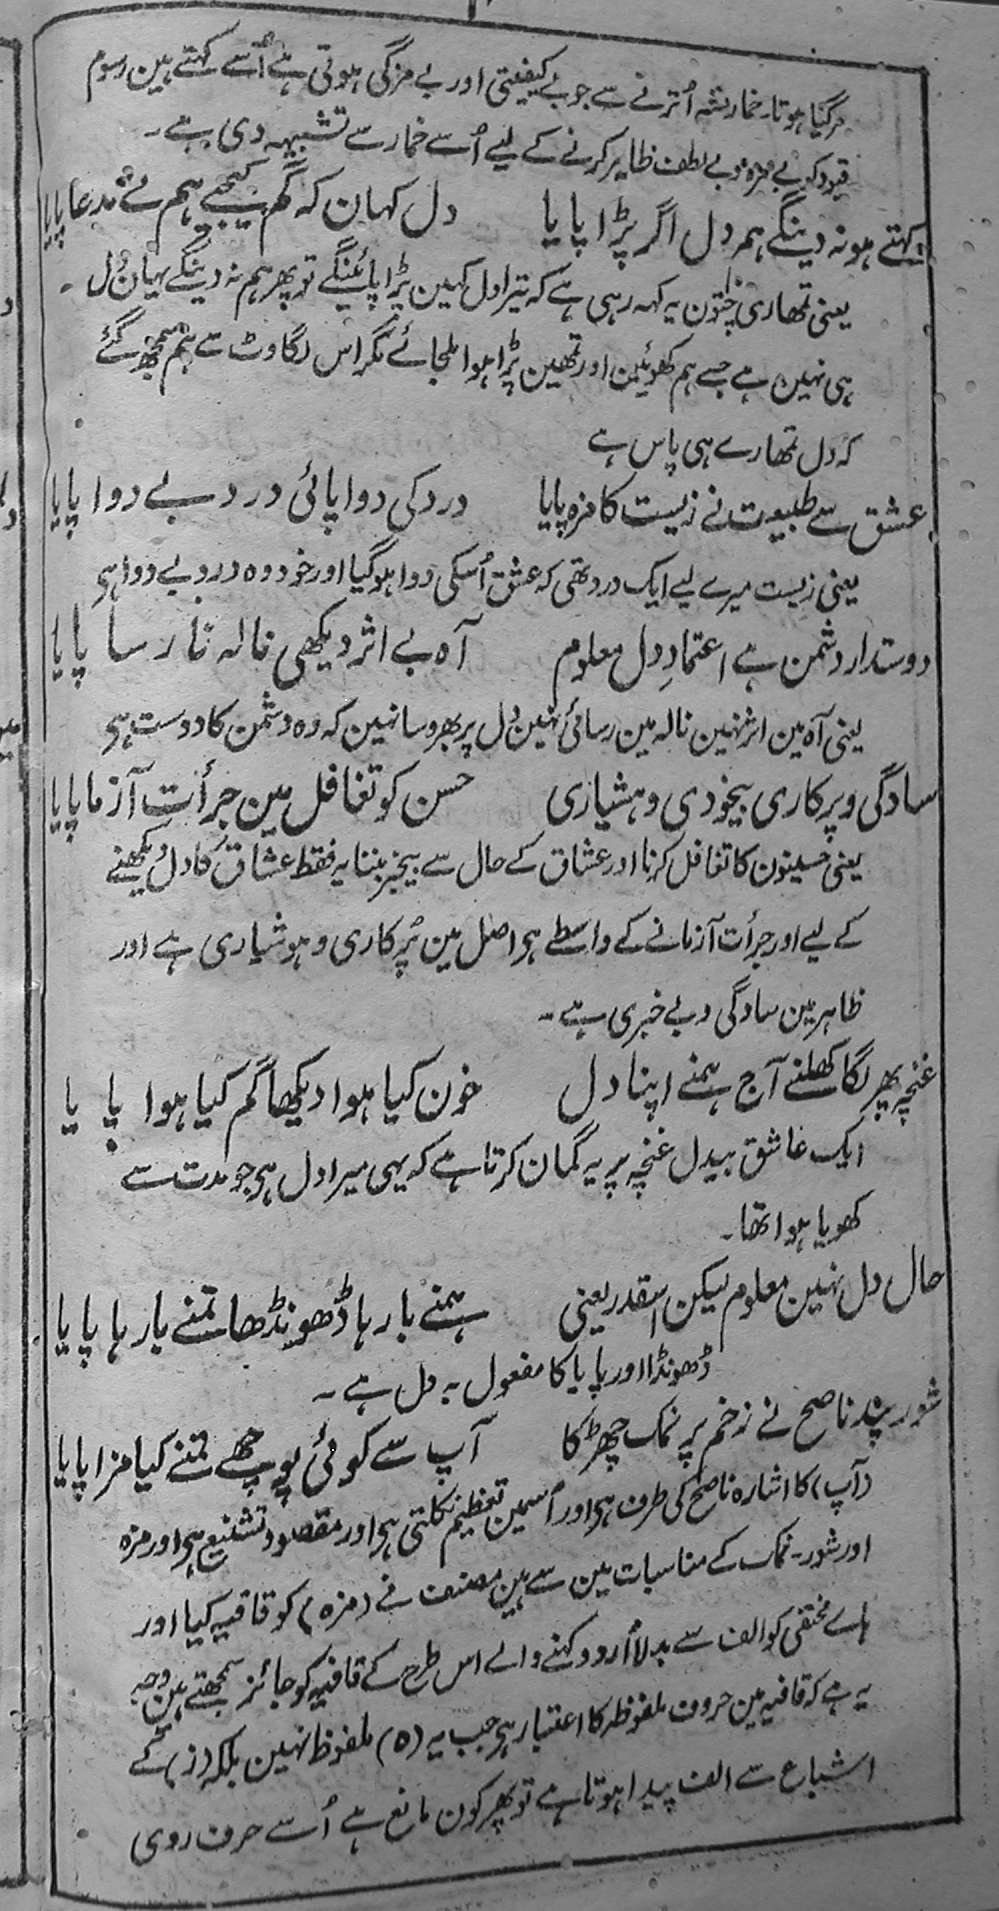 مرگیا ہوتا۔ خمار نشہ اُترنے سے جو بے کیفیتی اور بے مزگی ہوتی ہے اُسے کہتے ہین رسوم
قیود کو بے مزہ و بے لطف ظاہر کرنے کے لیے اُسے خمار سے تشبیہہ دی ہے ۔
کہتے ہو نہ دینگے ہم دل اگر پڑا پایا دل کہان کہ گم کیجیے ہم نے مدعا پایا
یعنی تمھاری چتون یہ کہہ رہی ہے کہ تیرا دل کہین پڑا پائینگے تو پھر ہم نہ دینگے یہان دل
ہی نہین ہے جسے ہم کھوئین اور تمھین پڑا ہوا ملجائے مگر اس لگاوٹ سے ہم سمجھ گئے
کہ دل تمھارے ہی پاس ہے
عشق سے طبیعت نے زیست کا مزہ پایا درد کی دوا پائی درد بے دوا پایا
یعنی زیست میرے لیے ایک درد تھی کہ عشق اُسکی دوا ہو گیا اور خود وہ درد بے دوا ہی
دوستدار دشمن ہے اعتمادِ دل معلوم آہ بے اثر دیکھی نالہ نارسا پایا
یعنی آہ مین اثر نہین نالہ مین رسائی نہین دل پر بھروسا نہین کہ وہ دشمن کا دوست ہی
سادگی و پرکاری بیخودی و ہشیاری حسن کو تغافل مین جرأت آزما پایا
یعنی حسینون کا تغافل کرنا اور عشاق کے حال سے بیخبر بننا یہ فقط عشاق کا دل دیکھنے
کے لیے اور جرأت آزمانے کے واسطے ہی اصل مین پُرکاری و ہوشیاری ہے اور
ظاہر مین سادگی و بے خبری ہے ۔
غنچہ پھر لگا کھلنے آج ہمنے اپنا دل خون کیا ہوا دیکھا گم کیا ہوا پایا
ایک عاشق بیدل غنچہ پر یہ گمان کرتا ہے کہ یہی میرا دل ہی جو مدت سے
کھویا ہوا تھا ۔
حال دل نہین معلوم لیکن اسقدر یعنی ہمنے بارہا ڈھونڈھا تمنے بارہا پایا
ڈھونڈا اور پایا کا مفعول بہ دل ہے ۔
شور پند ناصح نے زخم پر نمک چھڑکا آپ سے کوئی پوچھے تمنے کیا مزا پایا
(آپ) کا اشارہ ناصح کی طرف ہی اور اُسمین تعظیم نکلتی ہی اور مقصود تشنیع ہی اور مزہ
اور شور ۔ نمک کے مناسبات مین سے ہین مصنف نے (مزہ) کو قافیہ کیا اور
ہاے مختفی کو الف سے بدلا اُردو کہنے والے اس طرح کے قافیہ کو جائز سمجھتے ہین وجہ
یہ ہے کہ قافیہ مین حروف ملفوظہ کا اعتبار ہی جب یہ (ہ) ملفوظ نہین بلکہ (ز) کے
اشباع سے الف پیدا ہوتا ہے تو پھر کون مانع ہے اُسے حرف روی